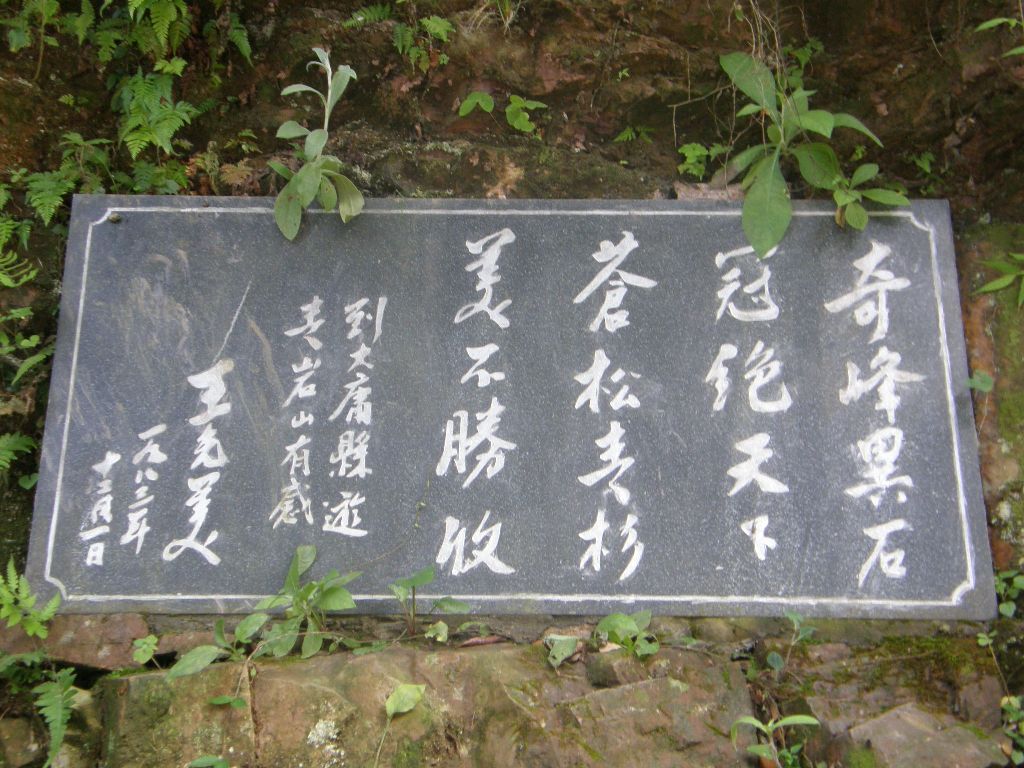 奇峰異石
冠絶天下
蒼松青杉
美不勝收
到大庸縣遊
青岩山有感
王光美
一九八二年
十二月一日